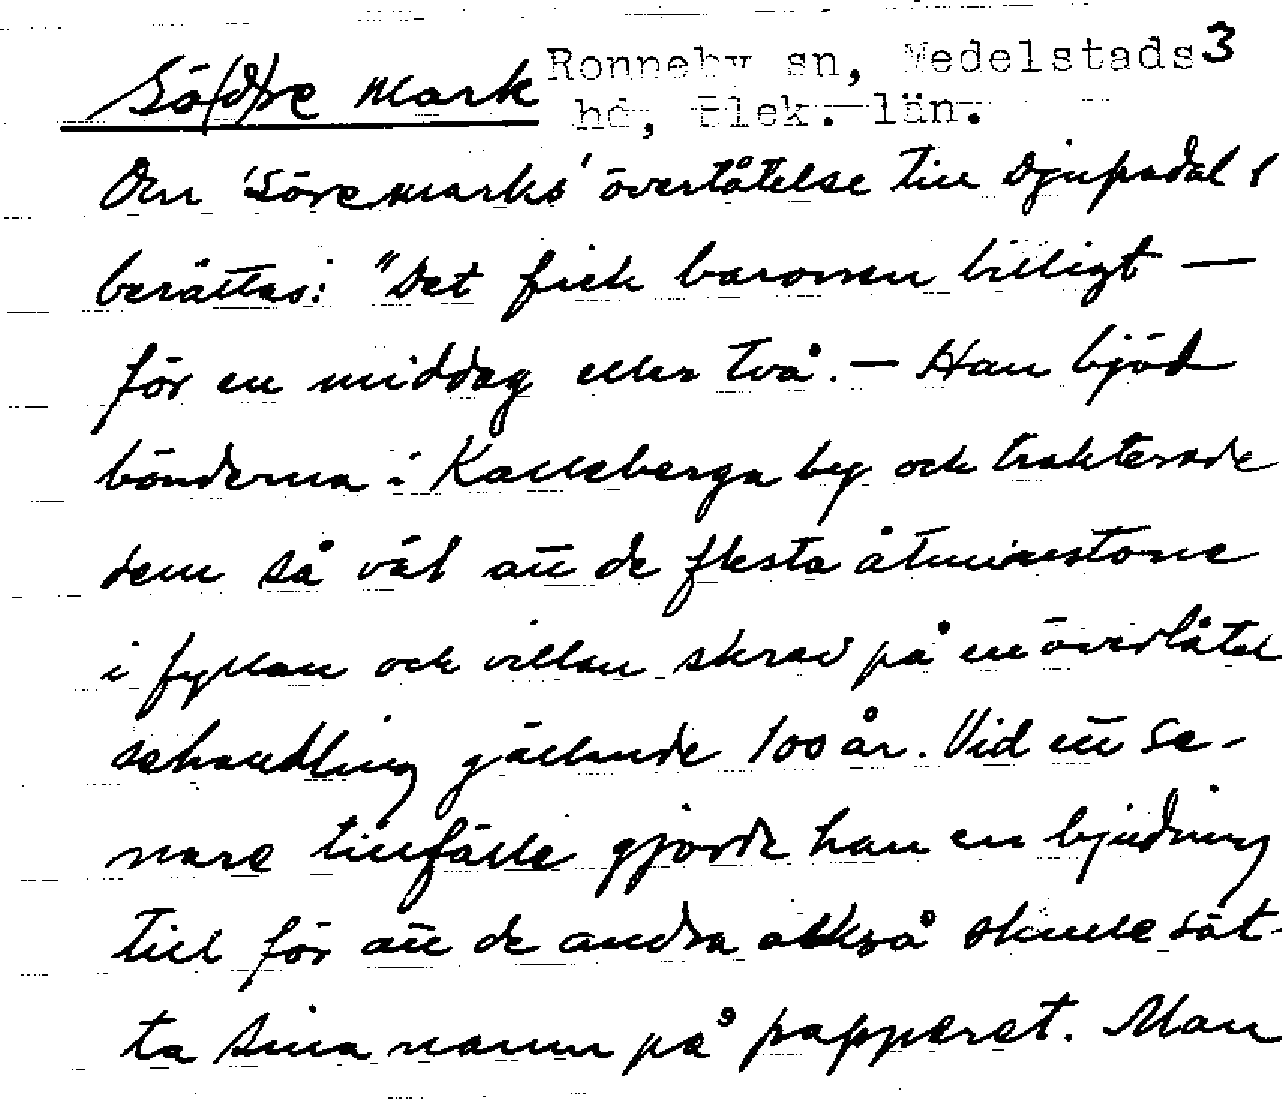 Sö(d)re Mark Ronneby sn, Medelstads 3
hd, Blek. län.
Om 'Söremarks' överlåtelse till Djupadal
berättas: "Det fick baronen billigt —
för en middag eller två. — Han bjöd
bönderna i Kalleberga by och trakterade
dem så väl att de flesta åtminstone
i fyllan och villan skrev på en överlåtel
sehandling gällande 100 år. Vid ett se-
nare tillfälle gjorde han en bjudning
till för att de andra också skulle sät-
ta sina namn på papperet. Man